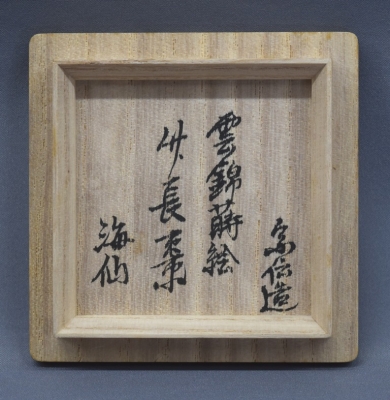 宗伝造
雲錦蒔絵
竹長棗
海仙